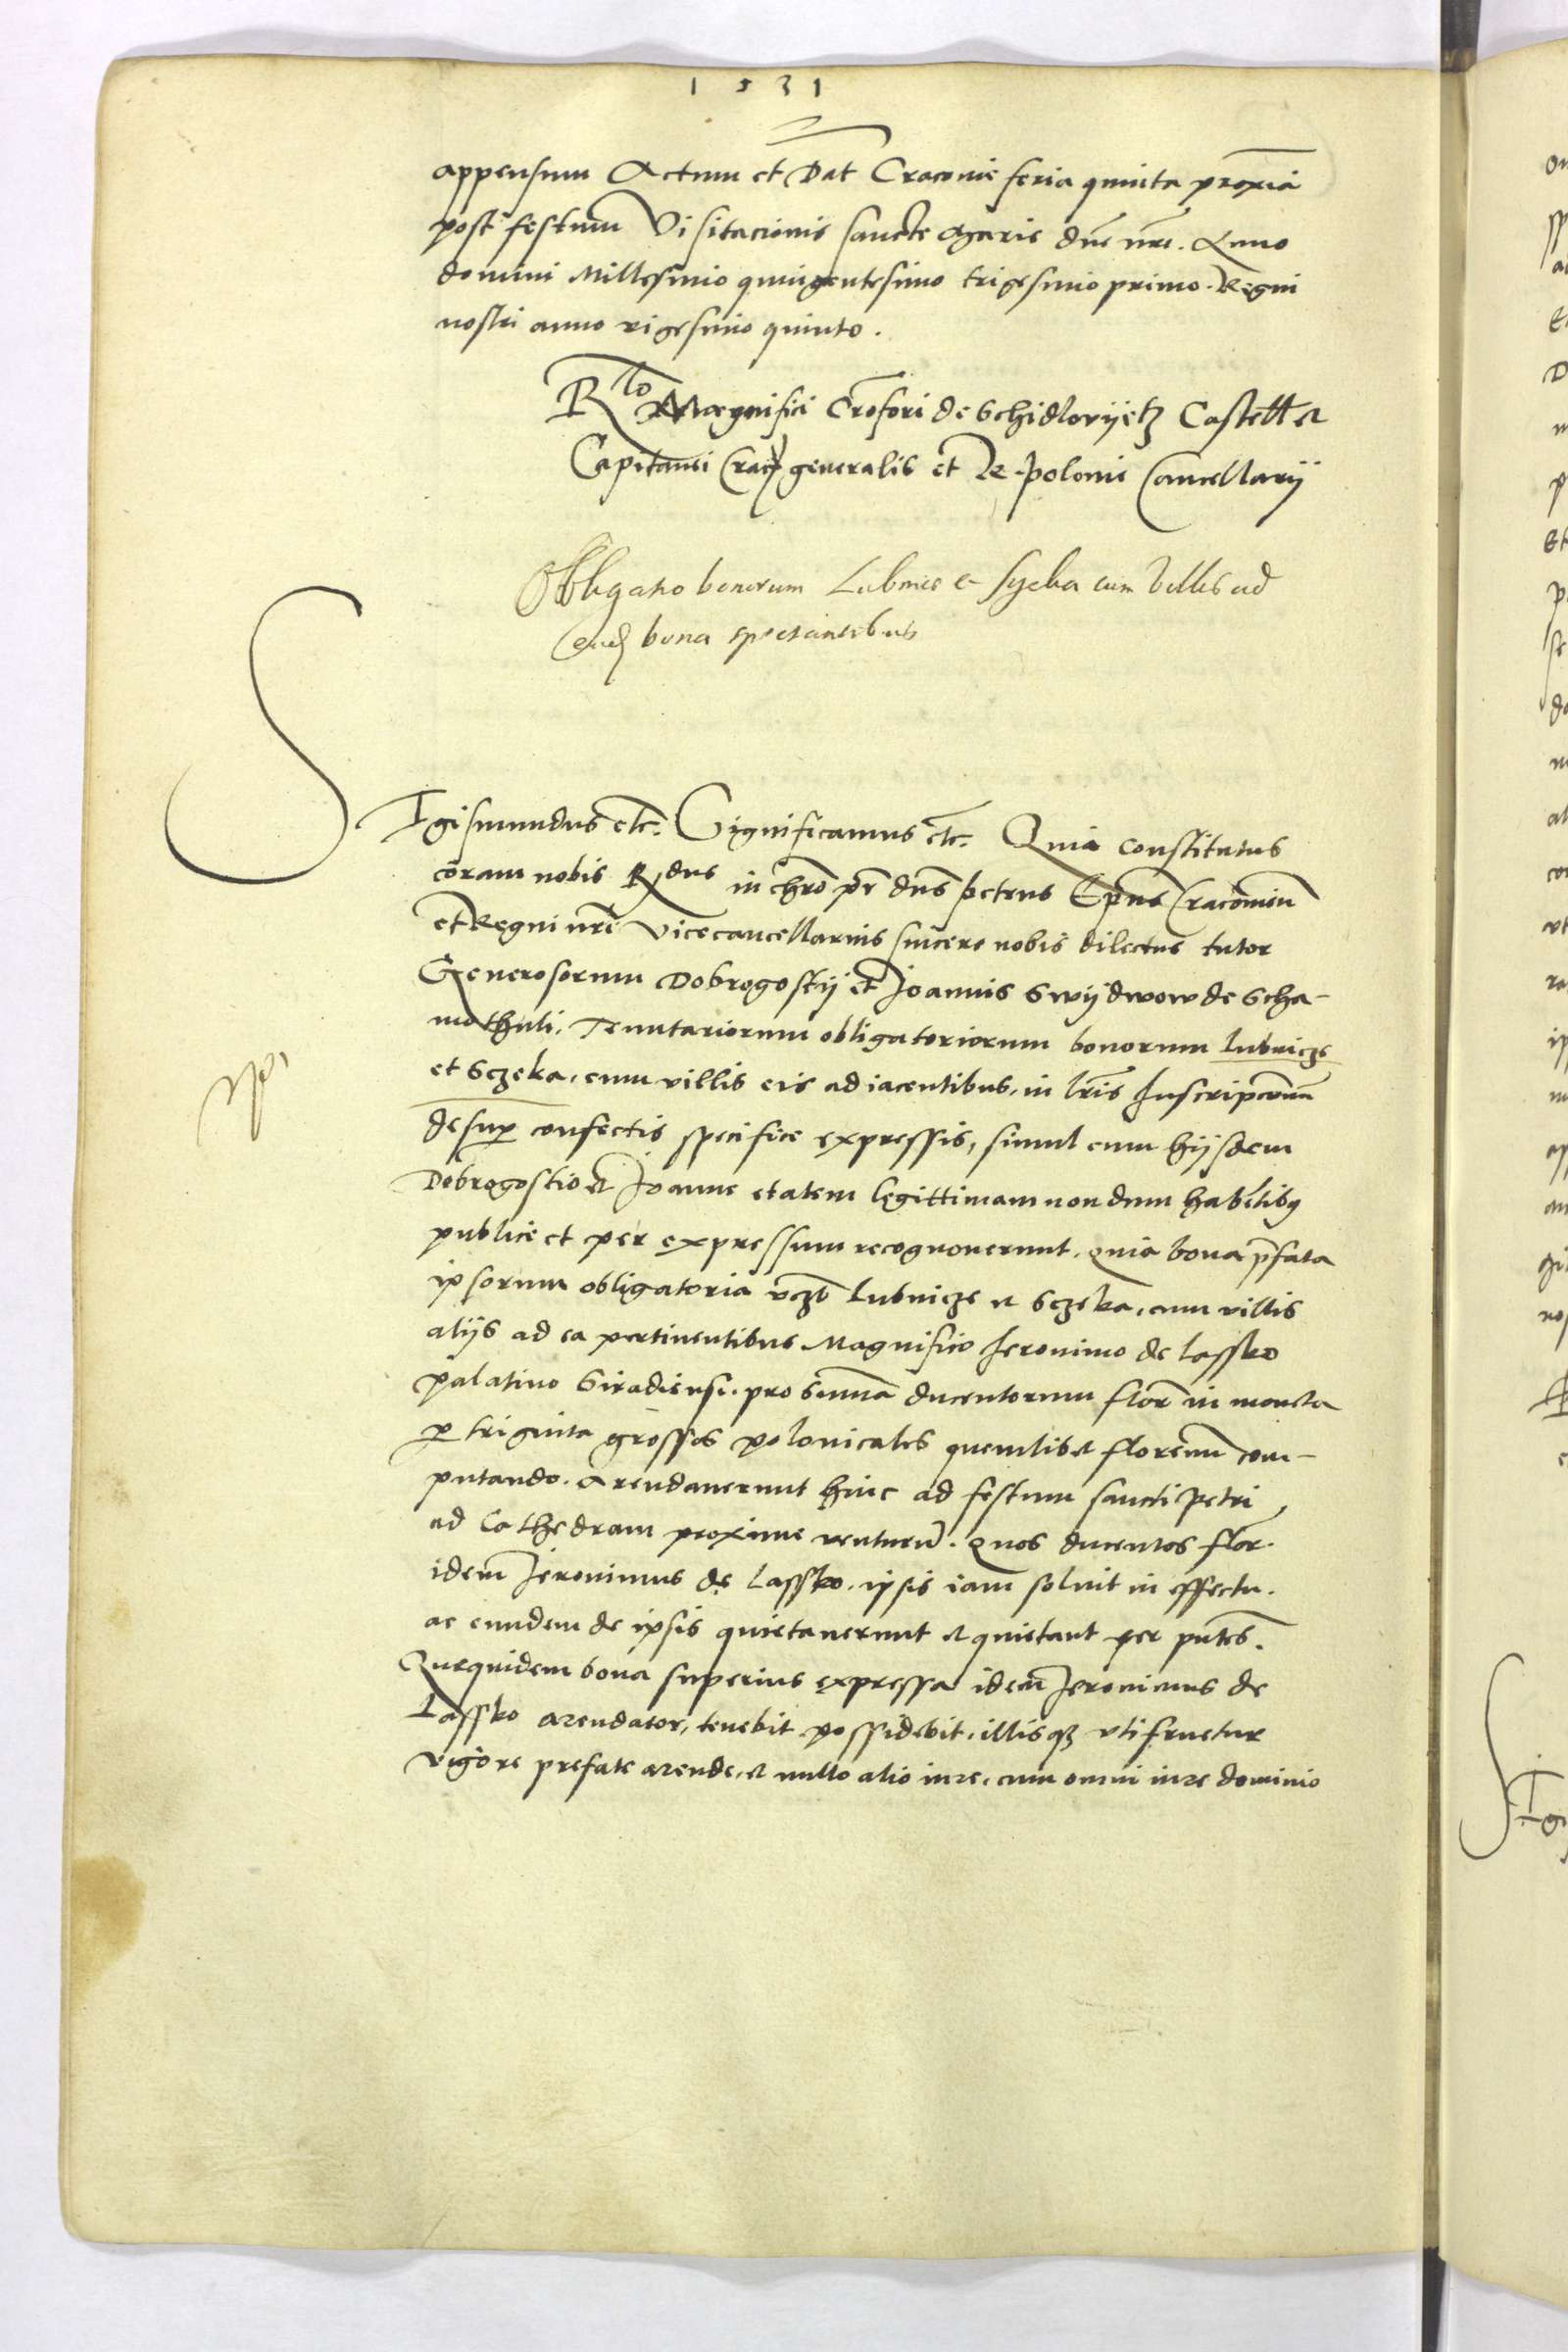 1531
appensum Actum et Dat Cracovie feria quinta proxīa
post festum Visitacionis sancte Marie dnē nrē. Anno
domini Millesimo quingentesimo trigesimo primo. Regni
nostri anno vigesimo quinto.
Rlo Magnifici Crōfori de Schidlovyetz Castell et
Capitanei Crac generalis et R. Polonie Cancellarij
Obligatio bonorum Lubnice et Syeka cum villis ad
ead bona spectantibus
SIgismundus etc. Significamus etc. Quia constitutus
coram nobis Rdus in chrō pr̄ dn̄s Petrus Ep̄us Cracovien̄
et Regni nr̄i Vicecancellarius sincere nobis dilectus tutor
Generosorum Dobrogostij et Joannis Swijdwow de Scha-
mothuli, Tenutariorum obligatoriorum bonorum Lubnicze
et Sczeka, cum villis eis adiacentibus, in lr̄is Inscripcōnū
desup confectis specifice expressis, simul cum hijsdem
Dobrogostio et Joanne etatem legittimam non dum habētibꝰ
publice et per expressum recognoverunt. quia bona p̄fata
ipsorum obligatoria vczt Lubnicze et Sczeka, cum villis
alijs ad ea pertinentibus Magnifico Jeronimo de Lassko
palatino Siradiensi. pro summa ducentorum flor̄ in moneta
p triginta grossos polonicales quemlibet florenū com-
putando. Arendaverunt hinc ad festum sancti Petri
ad Cathedram proxime venturū. Quos ducentos flor.
idem Jeronimus de Lassko. ipsis iam solvit in effectu.
ac eundem de ipsis quietaverunt et quietant per pn̄tes.
Quequidem bona superius expressa idem Jeronimus de
Lassko arendator, tenebit possidebit. illisqꝫ utifruetur
vigore prefate arende, et nullo alio iure, cum omni iure dominio